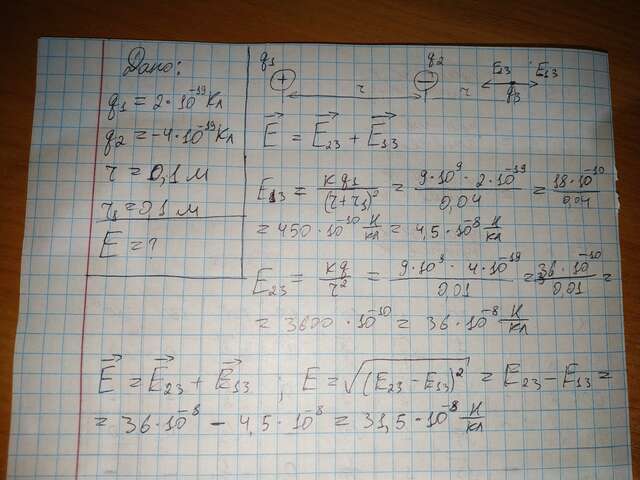 Дано:
q1 = 2·10^-19 Кл
q2 = -4·10^-19 Кл
r = 0,1 м
r1 = 0,1 м
E = ?
q1 q2 E23 E13
+ - r r q3
E = E23 + E13
E13 = kq1/(r+r1)^2 = 9·10^9 · 2·10^-19/0,04 = 18·10^-10/0,04
= 450·10^-10 Н/Кл = 4,5·10^-8 Н/Кл
E23 = kq/r^2 = 9·10^9 · 4·10^-19/0,01 = 36·10^-10/0,01 =
= 3600·10^-10 = 36·10^-8 Н/Кл
E = E23 + E13 ; E = √(E23 - E13)^2 = E23 - E13 =
= 36·10^-8 - 4,5·10^-8 = 31,5·10^-8 Н/Кл